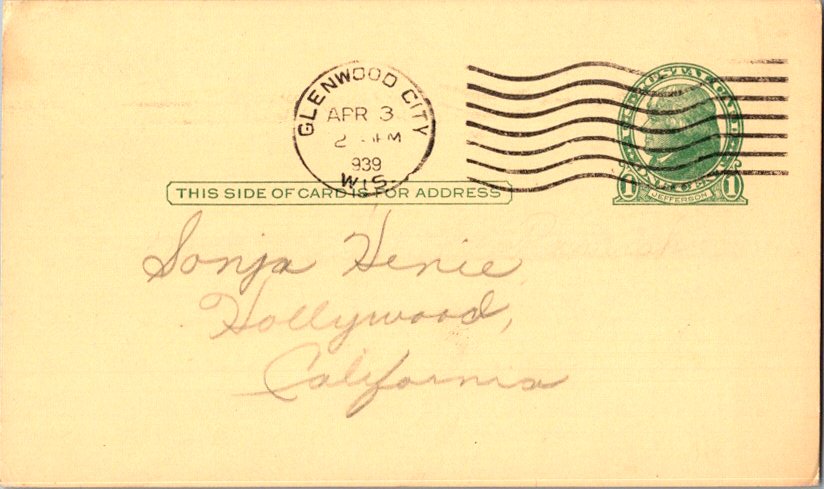 GLENWOOD CITY
APR 3
2 PM
939
WIS.
U.S. POSTAL CARD
ONE CENT
1 1
JEFFERSON
THIS SIDE OF CARD IS FOR ADDRESS
Sonja Henie,
Hollywood,
California